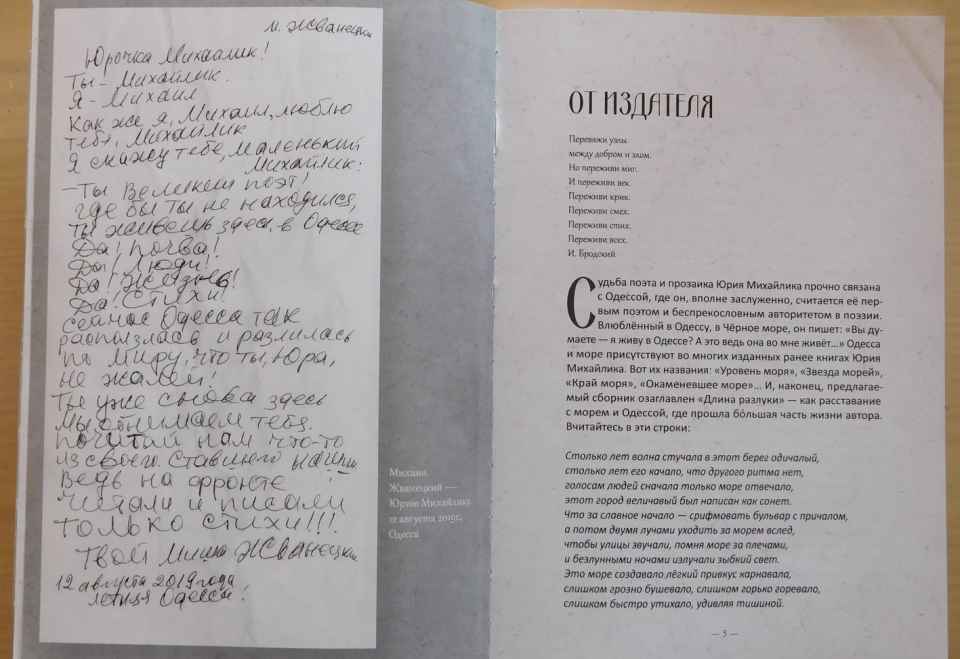 М. Жванецкий
Юрочка Михайлик!
Ты – Михайлик.
Я – Михаил
Как же я, Михаил, люблю
тебя, Михайлик
Я скажу тебе, маленький
Михайлик:
– Ты великий поэт!
Где бы ты не находился,
ты живешь здесь, в Одессе
Да! Почва!
Да! Люди!
Да! Жизнь!
Да! Стихи!
Сейчас Одесса так
расползлась и разлилась
по миру, что ты, Юра,
не жалей!
Ты уже снова здесь
Мы обнимаем тебя.
Почитай нам что-то
из своего. Ставшего нашим.
Ведь на фронте
читали и писали
только стихи!!!
Твой Миша Жванецкий
12 августа 2019 года
Одесса!
Михаил
Жванецкий —
Юрию Михайлику.
12 августа 2019г.,
Одесса
ОТ ИЗДАТЕЛЯ
Перевяжи узлы
между добром и злом.
Но переживи миг.
И переживи век.
Переживи крик.
Переживи смех.
Переживи стих.
Переживи всех.
И. Бродский
Судьба поэта и прозаика Юрия Михайлика прочно связана
с Одессой, где он, вполне заслуженно, считается её пер-
вым поэтом и беспрекословным авторитетом в поэзии.
Влюблённый в Одессу, в Чёрное море, он пишет: «Вы ду-
маете — я живу в Одессе? А это ведь она во мне живёт...» Одесса
и море присутствуют во многих изданных ранее книгах Юрия
Михайлика. Вот их названия: «Уровень моря», «Звезда морей»,
«Край моря», «Окаменевшее море»... И, наконец, предлагае-
мый сборник озаглавлен «Длина разлуки» — как расставание
с морем и Одессой, где прошла бо́льшая часть жизни автора.
Вчитайтесь в эти строки:
Столько лет волна стучала в этот берег одичалый,
столько лет его качало, что другого ритма нет,
голосам людей сначала только море отвечало,
этот город величавый был написан как сонет.
Что за славное начало — срифмовать бульвар с причалом,
а потом двумя лучами уходить за морем вслед,
чтобы улицы звучали, помня море за плечами,
и безлунными ночами излучали зыбкий свет.
Это море создавало лёгкий привкус карнавала,
слишком грозно бушевало, слишком горько горевало,
слишком быстро утихало, удивляя тишиной.
— 5 —